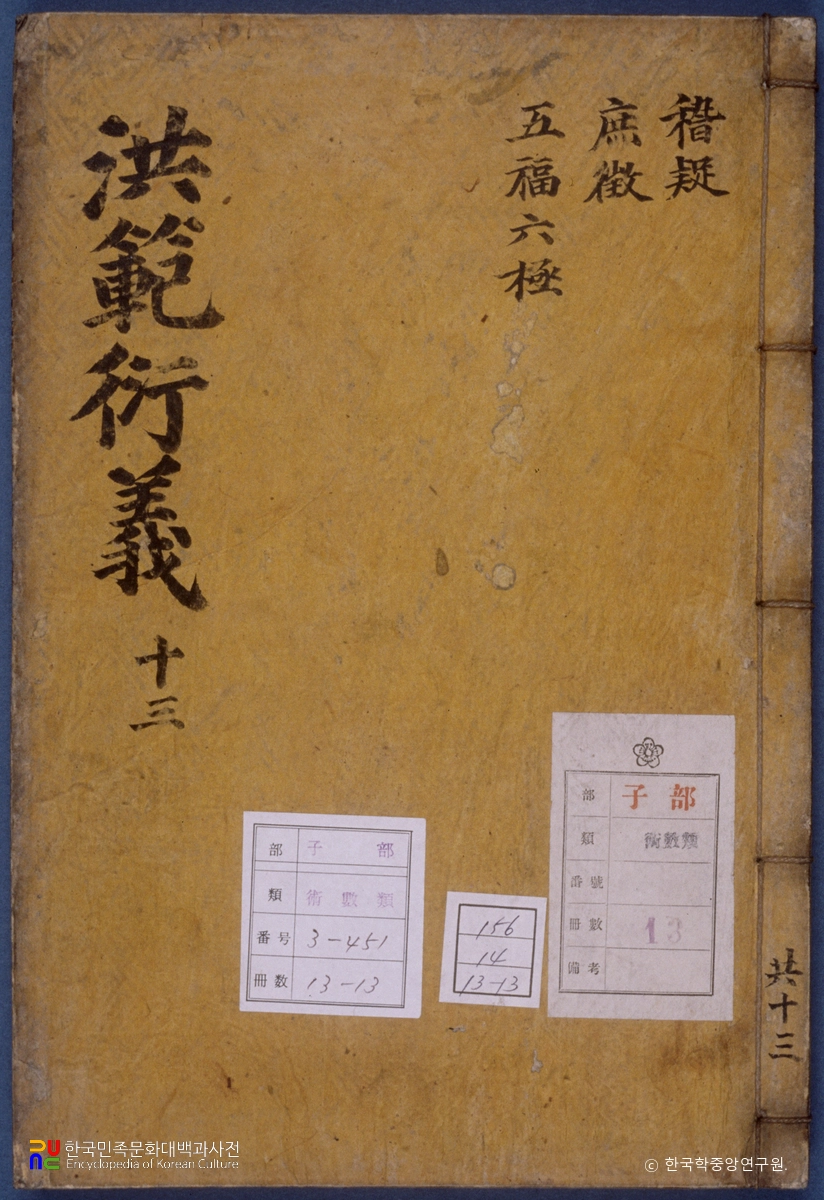 稽疑
庶徵
五福六極
洪範衍義 十三
共十三
部 子部
類 術數類
番號
冊數 13
備考
156
14
13-13
部 子部
類 術數類
番号 3-451
冊数 13-13
한국민족문화대백과사전
Encyclopedia of Korean Culture
© 한국학중앙연구원.